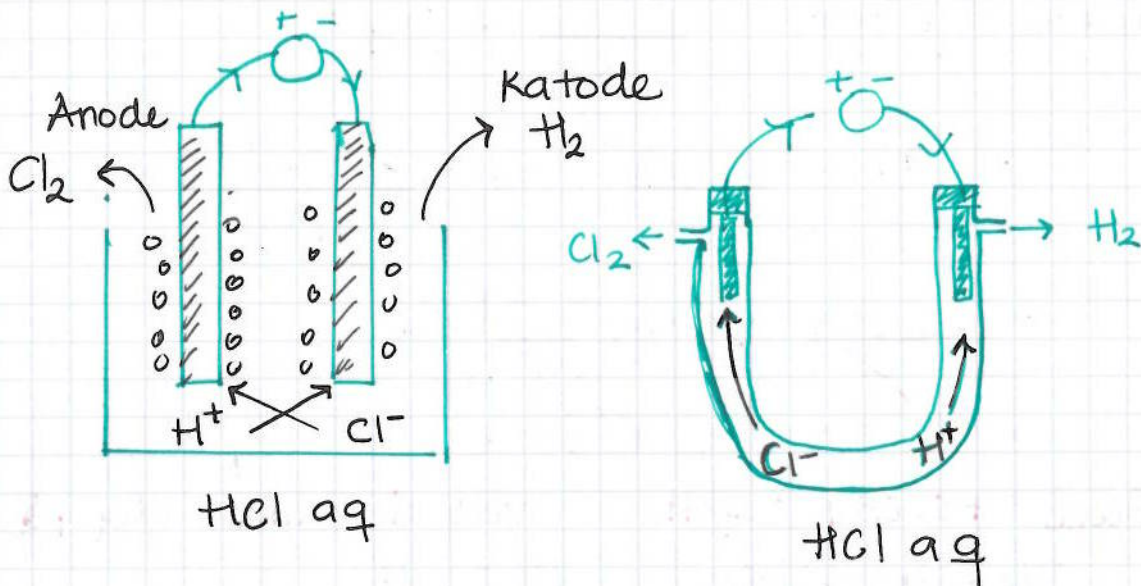 + -
Anode
Cl₂
Katode
H₂
H⁺ Cl⁻
HCl aq
+ -
Cl₂
H₂
Cl⁻ H⁺
HCl aq